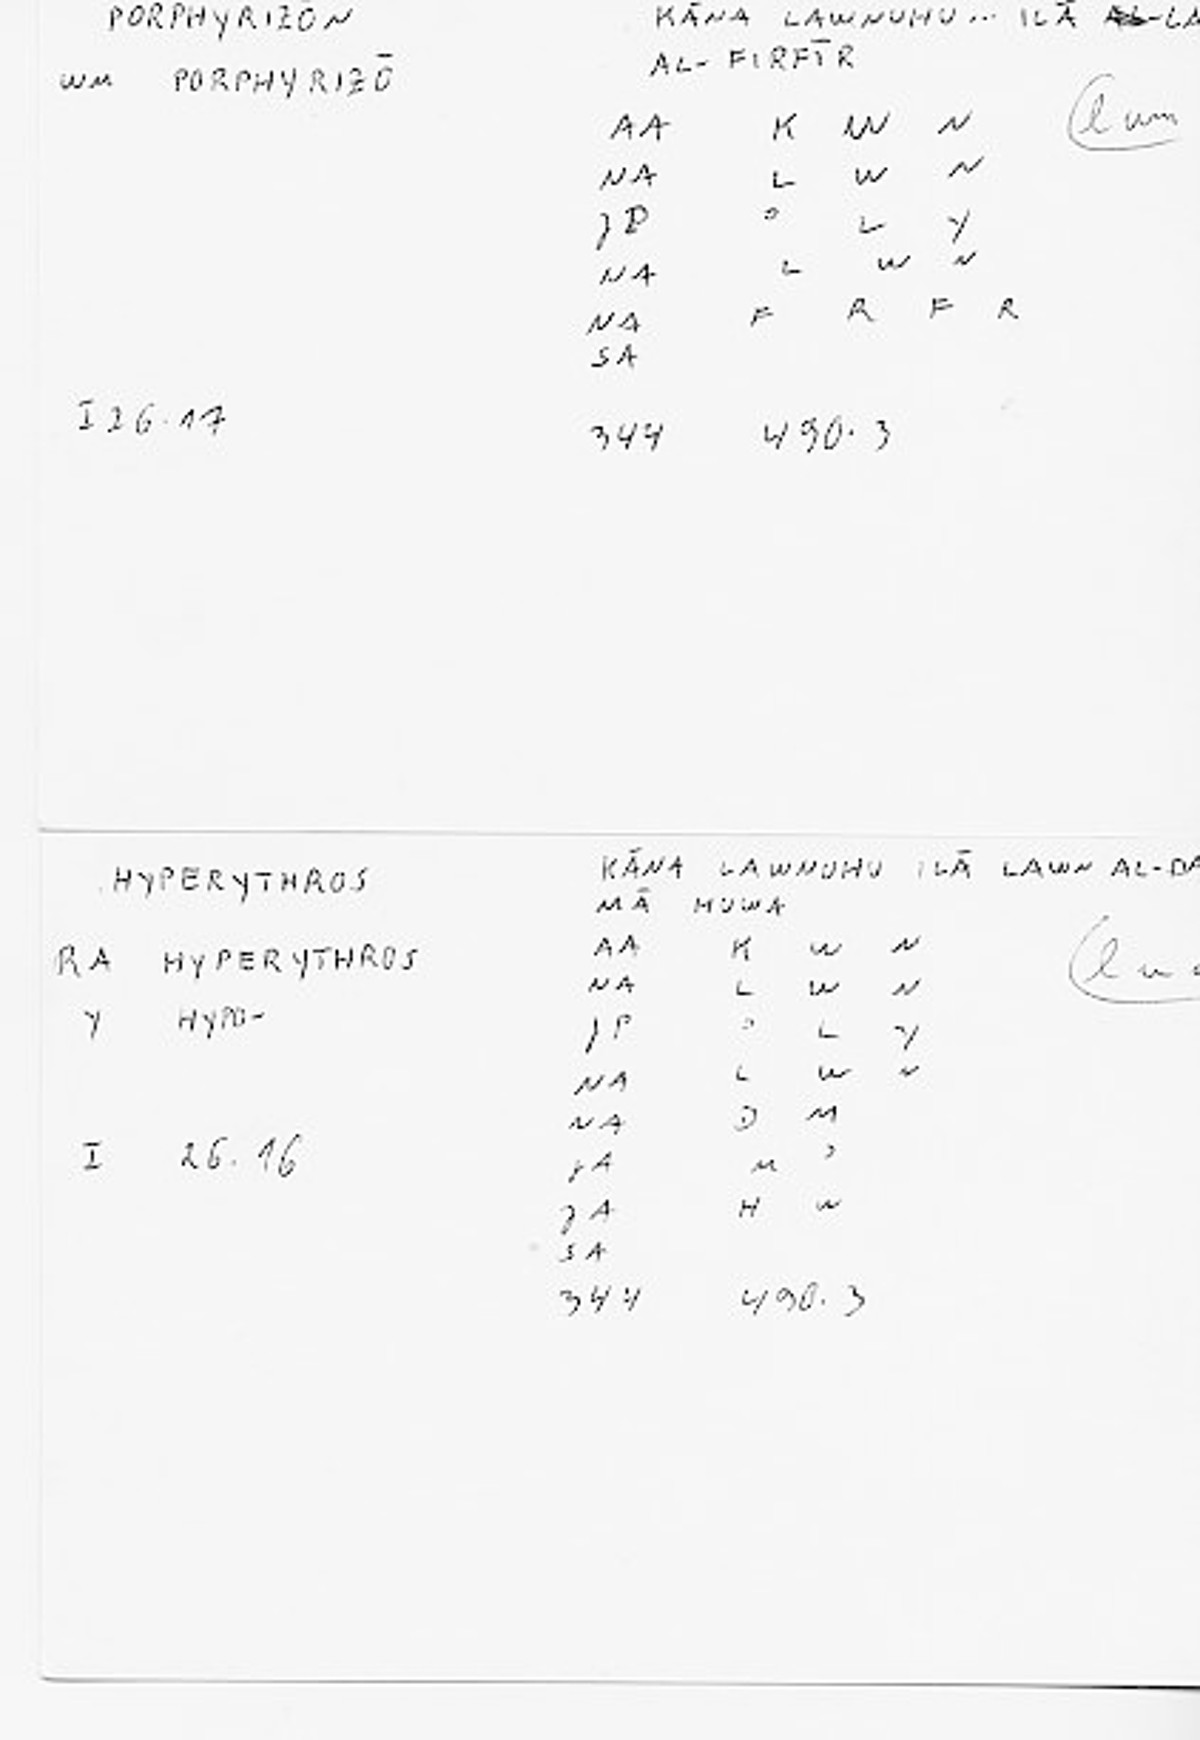 PORPHYRIZŌN
KĀNA LAWNUHU... ILĀ
AL-FIRFĪR
WM PORPHYRIZŌ
AA K W N
NA L W N
JP ʾ L Y
NA L W N
NA F R F R
SA
I 26.17
344 490.3
HYPERYTHROS
KĀNA LAWNUHU ILĀ LAWN
MĀ HUWA
RA HYPERYTHROS
Y HYPO-
AA K W N
NA L W N
JP ʾ L Y
NA L W N
NA D M
JA M ʾ
I 26.16
JA H W
SA
344 490.3